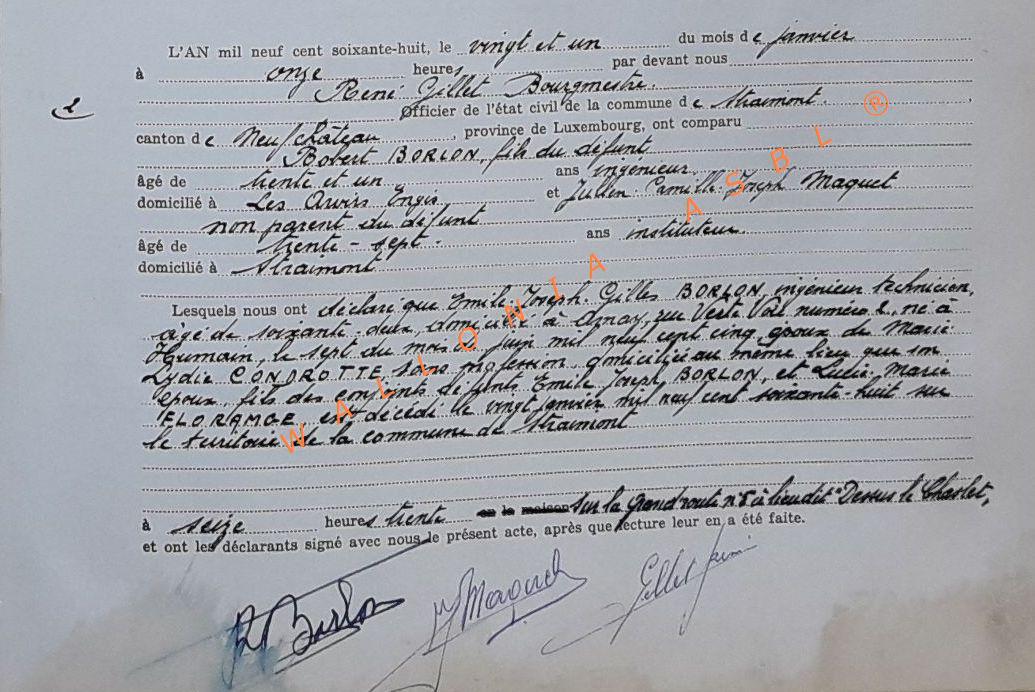 L'AN mil neuf cent soixante-huit, le vingt et un du mois de janvier
à onze heures par devant nous
René Gillet Bourgmestre.
2
Officier de l'état civil de la commune de Straimont.
canton de Neufchâteau, province de Luxembourg, ont comparu
Robert BORLON, fils du défunt
âgé de trente et un ans ingénieur.
domicilié à Les Awirs Engis et Julien Camille Joseph Maquet
non parent du défunt
âgé de trente-sept. ans instituteur
domicilié à Straimont
Lesquels nous ont déclaré que Emile Joseph Gilles BORLON, ingénieur technicien,
âgé de soixante deux domicilié à rue Verte Voie numéro 2, né à
Humain, le sept du mois de juin mil neuf cent cinq époux de Marie
Lydie CONDROTTE sans profession domiciliée au même lieu que son
époux, fils des conjoints défunts Emile Joseph BORLON, et Lucie, Marie
FLORANGE est décédé le vingt janvier mil neuf cent soixante-huit sur
le territoire de la commune de Straimont
à seize heures trente en la maison sur la Grand route n°5 à lieu dit "Dessus le Charlet,
et ont les déclarants signé avec nous le présent acte, après que lecture leur en a été faite.
R Borlon J Maquet Gillet
WALLONIA ASBL ®